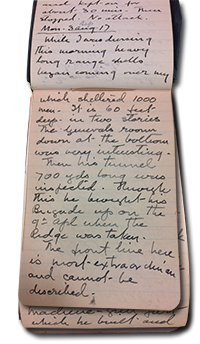 and kept on for
about 30 mins. Then
stopped. No attack.
Mon. 3 Aug 17
While Davis dining
this morning heavy
long range shells
began coming over my
which sheltered 1000
men. It is 60 feet
deep in two stories
The Generals rooms
down at the bottom
was very interesting.
Then his tunnel
700 yds long was
inspected. Through
this he brought his
Brigade up on the
9th Apl when the
ridge was taken.
The front line here
is most extraordinary
and cannot be
described.
machine-gun
which he built and